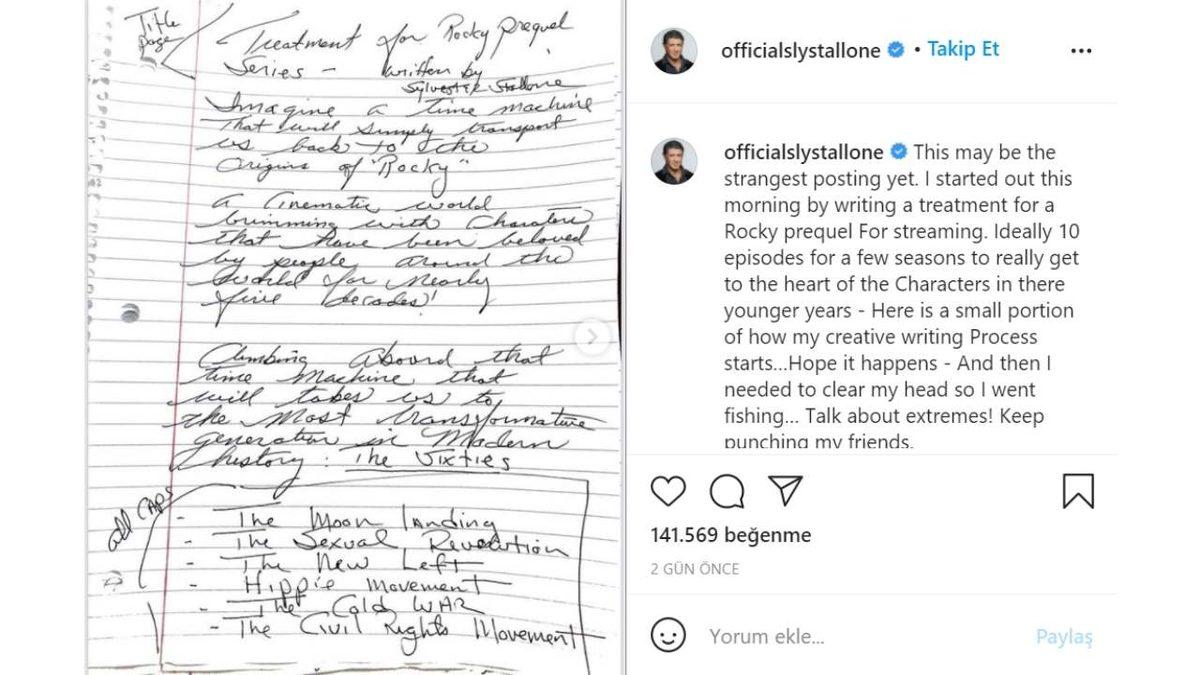 Title
page
Treatment for Rocky prequel
Series - written by
Sylvester Stallone
Imagine a time machine
That will simply transport
us back to the
Origins of "Rocky"
a Cinematic world
brimming with
that have been beloved
by people around the
World for Nearly
five decades!
Climbing Aboard that
time Machine that
will takes us to
the Most
generation in Modern
history: The Sixties
all CAPS
- The Moon landing
- The Sexual Revolution
- The New Left
- Hippie Movement
- The Cold WAR
- The Civil Rights Movement
officialslystallone • Takip Et
officialslystallone This may be the
strangest posting yet. I started out this
morning by writing a treatment for a
Rocky prequel For streaming. Ideally 10
episodes for a few seasons to really get
to the heart of the Characters in there
younger years - Here is a small portion
of how my creative writing Process
starts...Hope it happens - And then I
needed to clear my head so I went
fishing... Talk about extremes! Keep
punching my friends.
141.569 beğenme
2 GÜN ÖNCE
Yorum ekle...
Paylaş